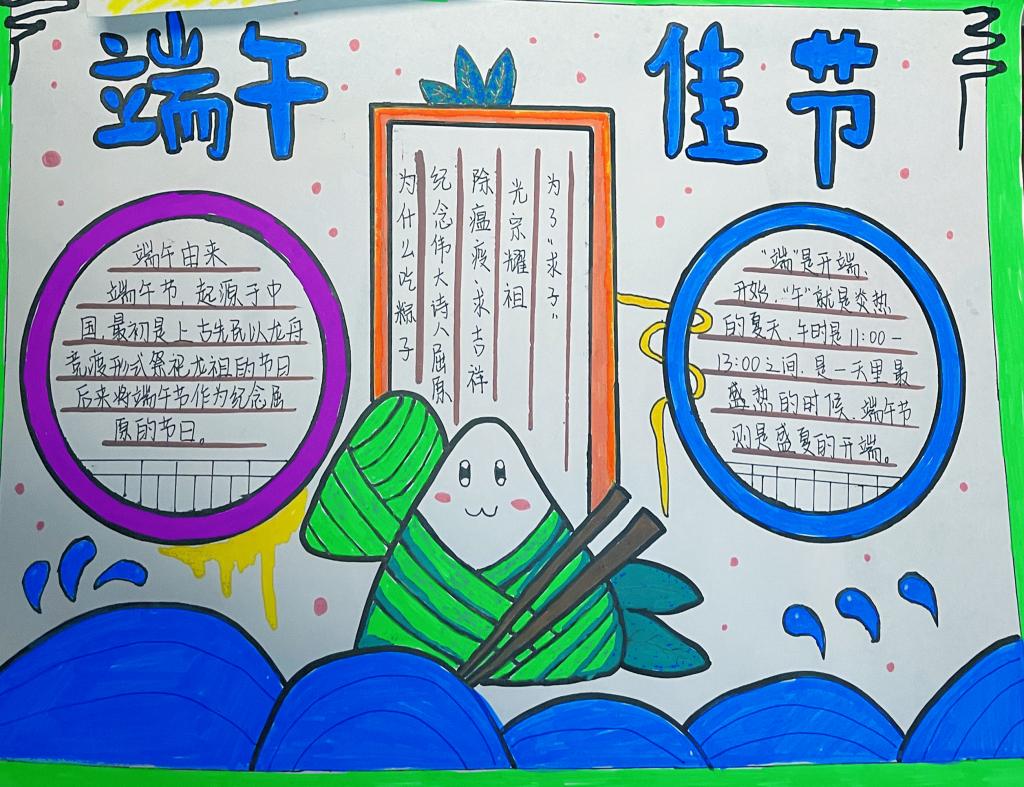 端午佳节
端午由来
端午节,起源于中
国,最初是上古先民以龙舟
竞渡形式祭祀龙祖的节日
后来将端午节作为纪念屈
原的节日。
为什么吃粽子
纪念伟大诗人屈原
除瘟疫、求吉祥
光宗耀祖
为了“求子”
“端”是开端、
开始,“午”就是炎热
的夏天,午时是11:00-
13:00之间,是一天里最
盛热的时候,端午节
则是盛夏的开端。